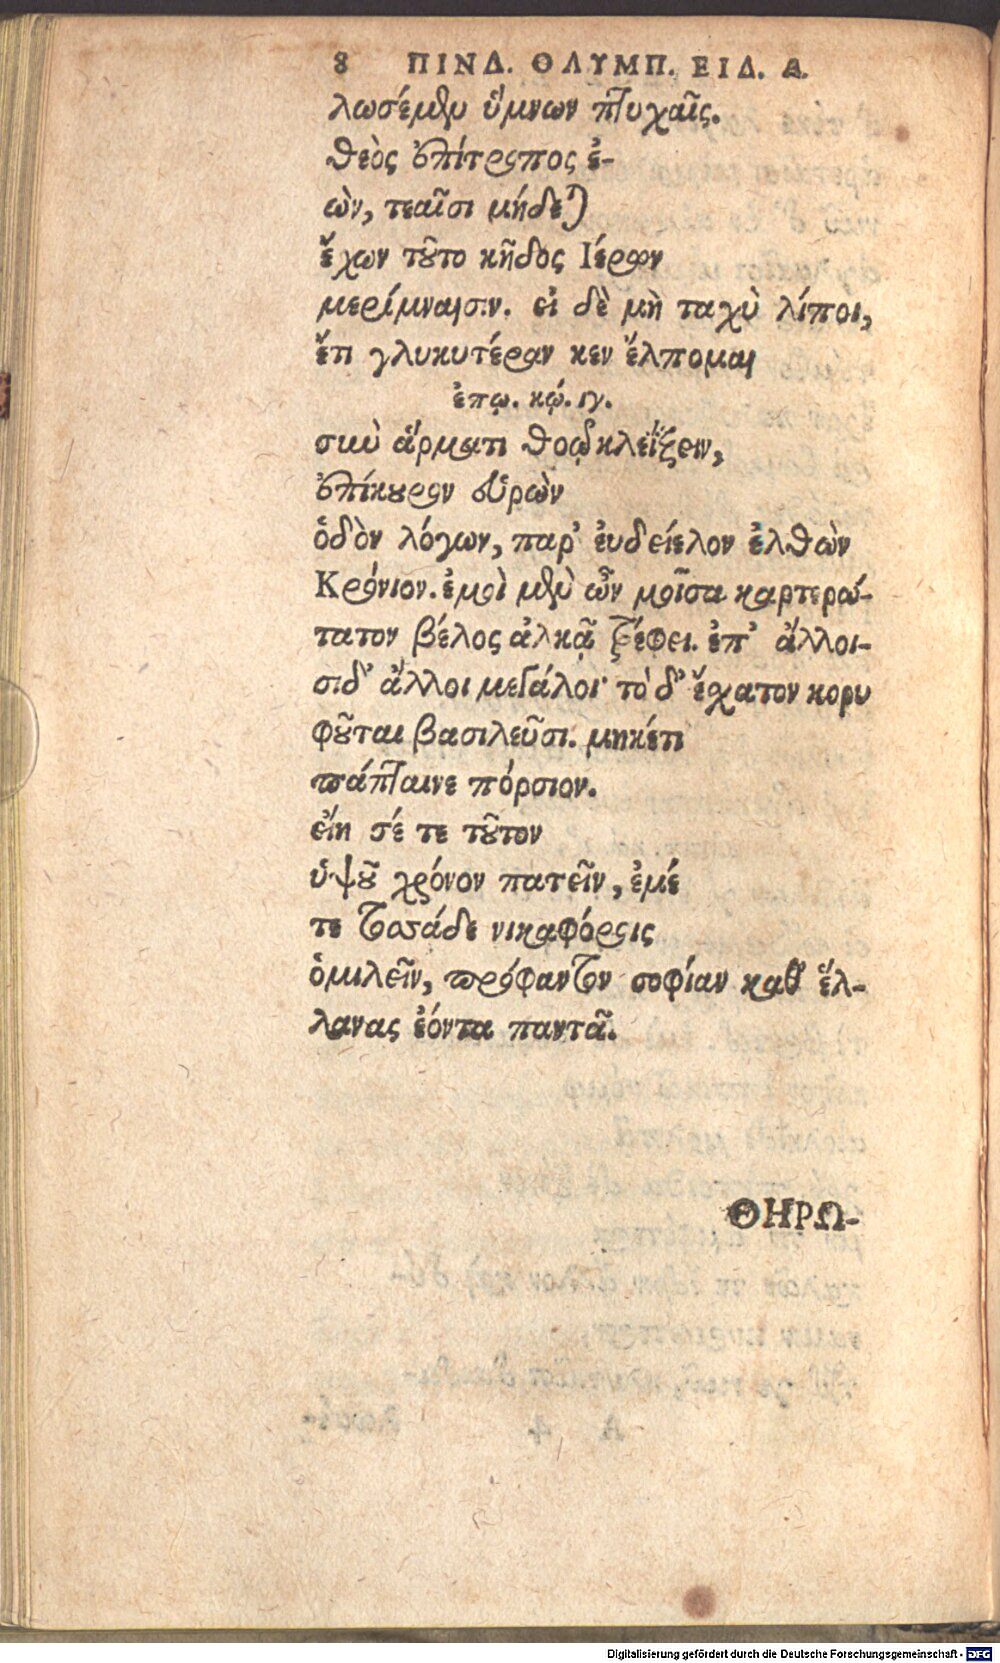 8 ΠΙΝΔ. ΟΛΥΜΠ. ΕΙΔ. Α.
λωσέμεν ὕμνων πτυχαῖς.
Θεὸς ἐπίτροπος ἐ-
ὼν, τεαῖσι μήδεται
ἔχων τοῦτο κῆδος Ἱέρων
μερίμναισιν. εἰ δὲ μὴ ταχὺ λίποι,
ἔτι γλυκυτέραν κεν ἔλπομαι
ἐπῳ. κώ. ιγ.
σὺν ἅρματι θοῷ κλεΐξειν,
ἐπίκουρον εὑρὼν
ὁδὸν λόγων, παρ' εὐδείελον ἐλθὼν
Κρόνιον. ἐμοὶ μὲν ὦν μοῖσα καρτερώ-
τατον βέλος ἀλκᾷ τρέφει. ἐπ' ἄλλοι-
σι δ' ἄλλοι μεγάλοι· τὸ δ' ἔσχατον κορυ
φοῦται βασιλεῦσι. μηκέτι
πάπταινε πόρσιον.
εἴη σέ τε τοῦτον
ὑψοῦ χρόνον πατεῖν, ἐμέ
τε τοσάδε νικαφόροις
ὁμιλεῖν, πρόφαντον σοφίαν καθ' ἕλ-
λανας ἐόντα παντᾶ.
ΘΗΡΩ-
Digitalisierung gefördert durch die Deutsche Forschungsgemeinschaft - DFG